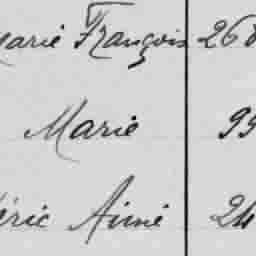 Marie François 268
Marie 99
éric Aimé 24